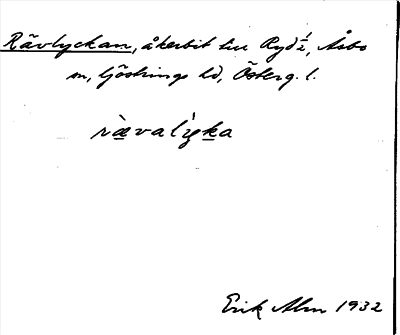 Rävlyckan, åkerbit till Ryd ½, Åsbo
sn, Göstrings hd, Österg. l.
rævalyka
Erik Alm 1932